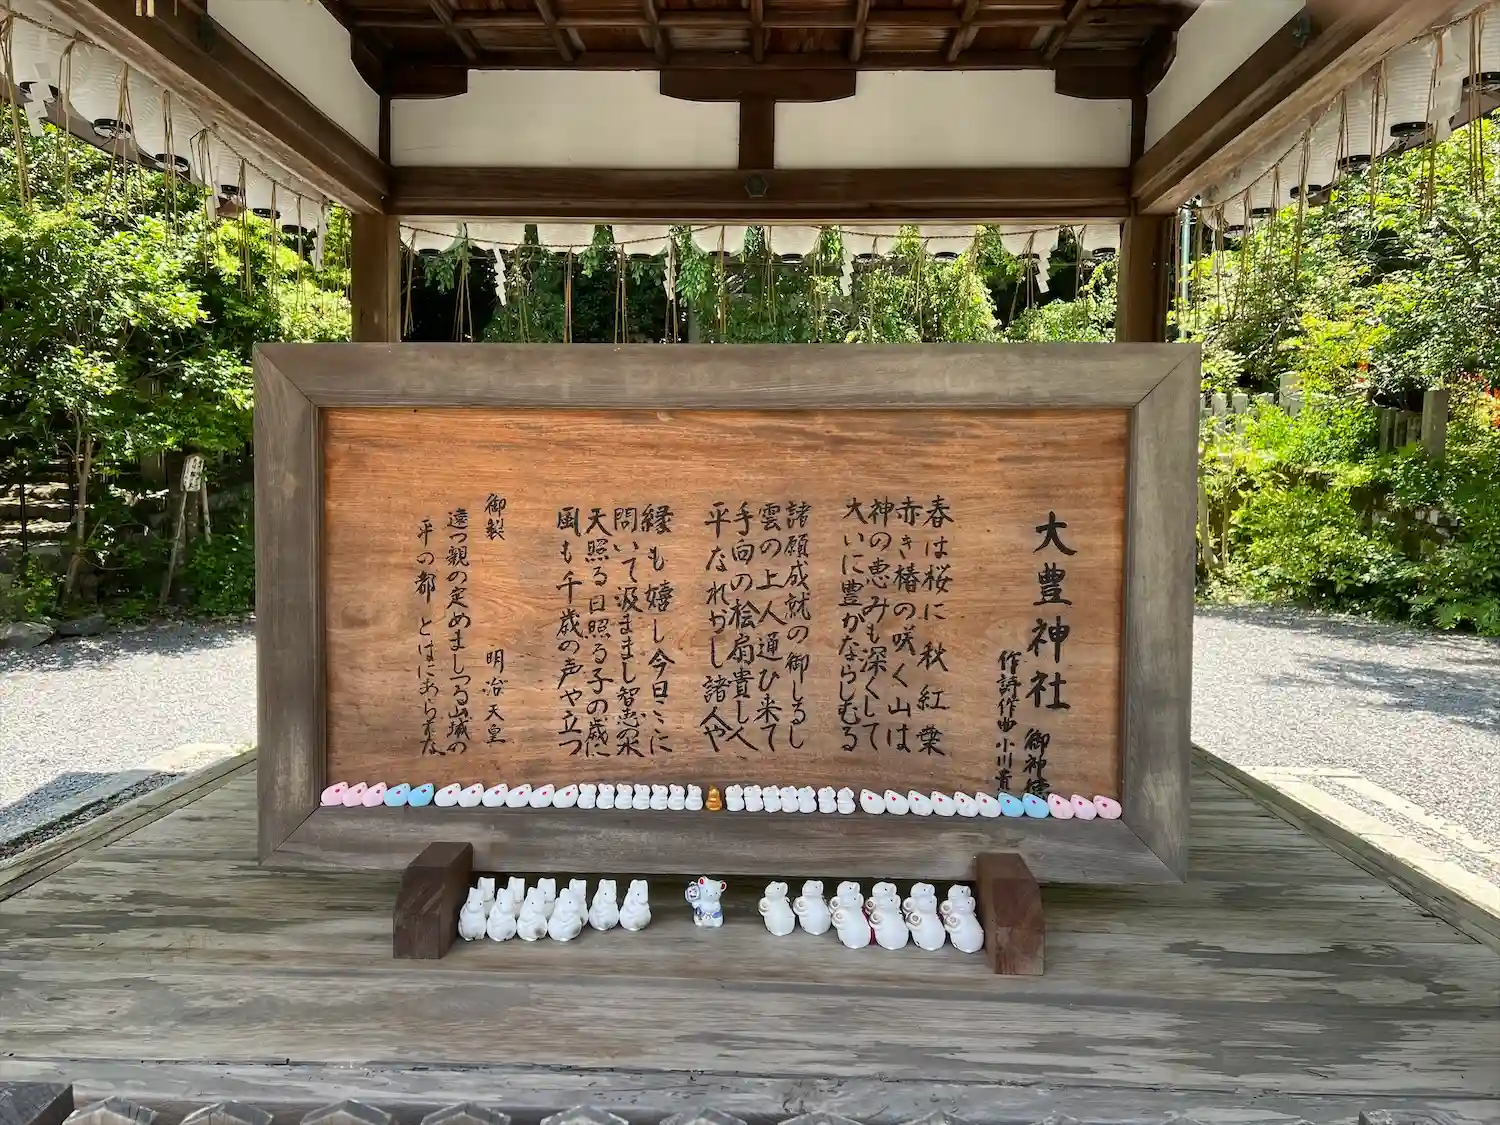 大豊神社 御神徳
作詩作曲 小川貴
春は桜に 秋紅葉
赤き椿の咲く山は
神の恵みも深くして
大いに豊かならしむる
諸願成就の御しるし
雲の上人通ひ来て
手向の桧扇貴し人
平なれかし諸人や
縁も嬉し今日こゝに
問いて汲ままし智恵の水
天照る日照る子の歳に
風も千歳の声や立つ
御製 明治天皇
遠つ親の定めましつる山城の
平の都 とはにあらすな